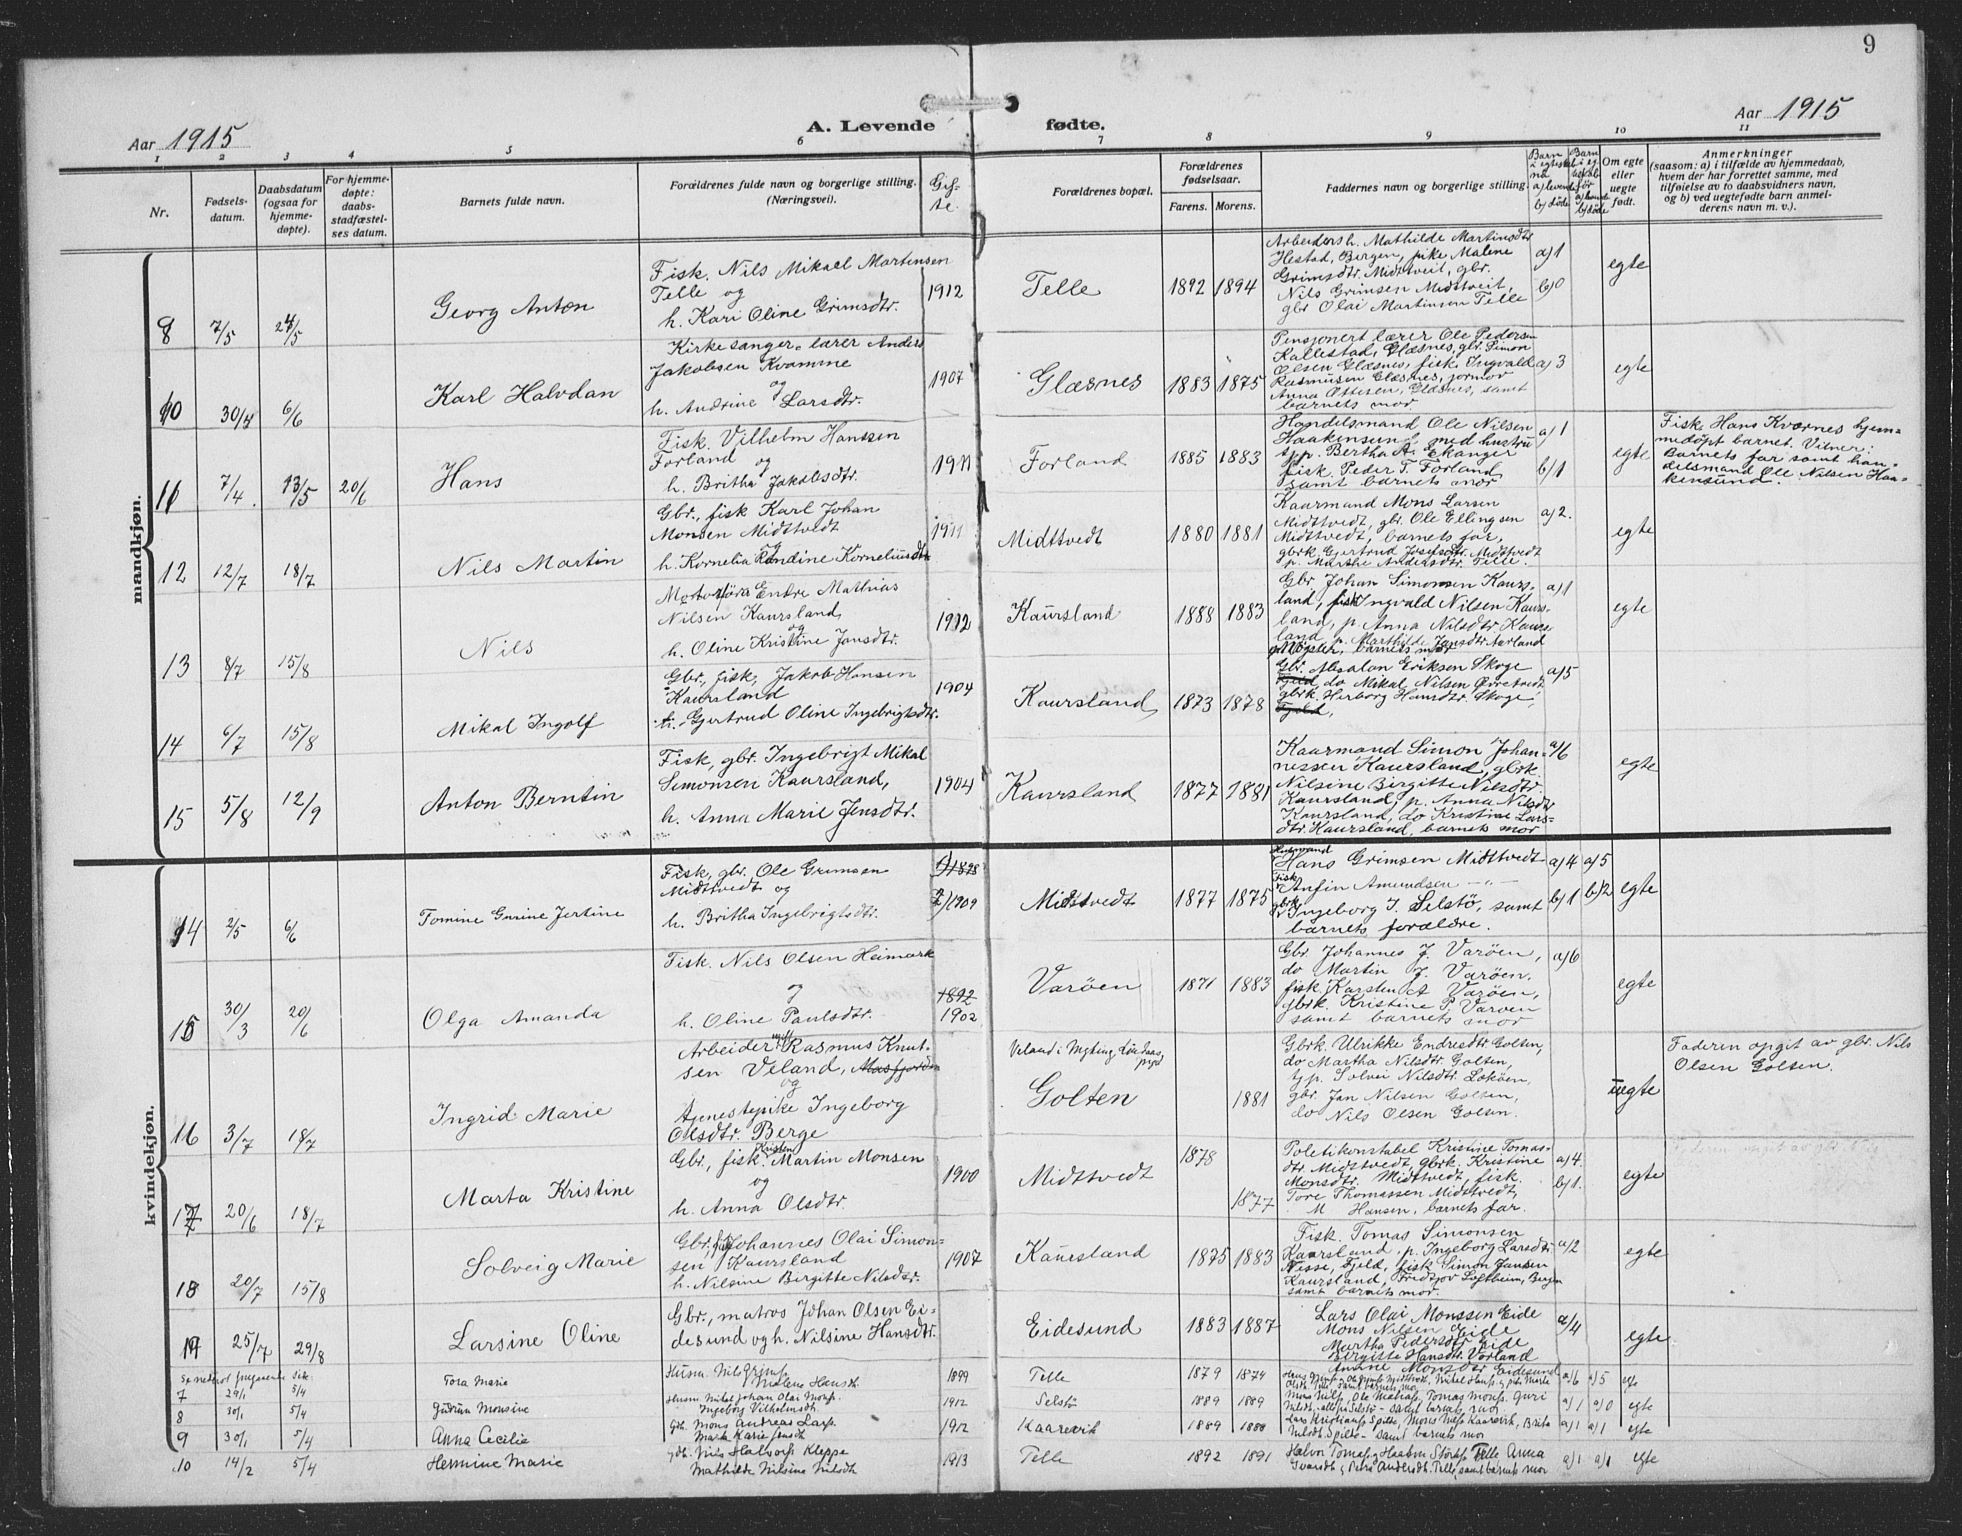 9
Aar 1915
A. Levende fødte.
Aar 1915
1 2 3 4 5 6 7 8 9 10 11
Nr.
Fødsels-
datum.
Daabsdatum
(ogsaa for
hjemme-
døpte).
For hjemme-
døpte:
daabs-
stadfæstel-
ses datum.
Barnets fulde navn.
Forældrenes fulde navn og borgerlige stilling.
(Næringsvei).
Gif-
te.
Forældrenes bopæl.
Forældrenes
fødselsaar.
Farens. Morens.
Faddernes navn og borgerlige stilling.
Om egte
eller
uegte
født.
Anmerkninger
(saasom: a) i tilfælde av hjemmedaab,
hvem der har forrettet samme, med
tilføielse av to daabsvidners navn,
og b) ved uegtefødte barn anmel-
derens navn m. v.).
mandkjøn.
8 7/5 24/5 Georg Anton
Fisk. Nils Mikael Martensen
Telle og
h. Kari Oline Grimsdtr.
1912 Telle 1892 1894
Arbeidersh. Mathilde Martinsdtr
Hestad, Bergen, pike Malene
Grimsdtr. Midtveit, gbr.
Nils Grimsen Midtveit,
gbr Olai Martinsen Telle
a/1
b/0
egte
10 30/4 6/6 Karl Halvdan
Kirkesanger, lærer Anders
Jakobsen Kvamme
og
h. Andrine Larsdtr.
1907 Glæsnes 1883 1875
Pensjonert lærer Ole Pedersen
Kallestad, Glæsnes, gbr. Simon
Olsen Glæsnes, fisk. Ingvald
Rasmussen Glæsnes, jormor
Anna Ottesen, Glæsnes, samt
barnets mor.
a/3
egte
11 7/4. 13/5 20/6 Hans
Fisk. Vilhelm Hanssen
Forland og
h. Britha Jakobsdtr.
1911 Forland 1885 1883
Handelsmand Ole Nilsen
Haakensund, med hustru
tjp. Bertha A. Ekanger
fisk. Peder T. Forland
samt barnets mor
a/1
b/1
egte
Fisk. Hans Kværnes hjem-
medøpt barnet. Vitner:
Barnets far samt han-
delsmand Ole Nilsen Haa-
kensund.
12 12/7 18/7 Nils Martin
Gbr., fisk Karl Johan
Monsen Midttvedt
og
h. Kornelia Randine Korneliusdtr
1911 Midttvedt 1880 1881
Kaarmand Mons Larsen
Midttvedt, gbr. Ole Ellingsen
Midttvedt, barnets far,
gbrk. Gjertrud Josefsdtr. Midtvedt
p. Marthe Andersdtr. Telle.
a/2.
egte
13 8/7 15/8 Nils
Endre Mathias
Nilsen Kaursland,
og
h. Oline Kristine Jansdtr.
1912 Kaursland 1888 1883
Gbr Johan Simonsen Kaurs-
land, fisk Ingvald Nilsen Kaurs-
land, p. Anna Nilsdtr. Kaurs-
land p. Marthilde Jansdtr Aarland
barnets mor
a/1
egte
14 6/7 15/8 Mikal Ingolf
Gbr., fisk, Jakob Hansen
Kaursland
h. Gjertrud Oline Ingebrigtsdtr.
1904 Kaursland 1873 1878
Gbr. Absalon Eriksen Skoge
Fjeld, do Mikal Nilsen Øvretvedt
gbrk. Herborg Hansdtr. Skoge,
Fjeld,
a/5
15 5/8 12/9 Anton Berntin
Fisk, gbr. Ingebrigt Mikal
Simonsen Kaursland,
h. Anna Marie Jensdtr.
1904 Kaursland 1877 1881
Kaarmand Simon Johan-
nessen Kaursland, gbrk
Nilsine Birgitte Nilsdtr.
Kaursland, p. Anna Nilsdtr
Kaursland, do Kristine Lars-
dtr. Kaursland, barnets mor
a/6
egte
kvindekjøn.
14 2/5 6/6 Tomine Gurine Jertine
Fisk, gbr. Ole Grimsen
Midttvedt og
h. Britha Ingebrigtsdtr.
1) 1898
2) 1909
Midttvedt 1877 1875
Husmand
Hans Grimsen Midttvedt
Fisk.
Anfin Amundsen — „ —
gbrk.
Ingeborg J. Selstø, samt
barnets forældre.
a/4 a/5
b/1 b/2
egte
15 30/3 20/6 Olga Amanda
Fisk. Nils Olsen Heimark
og
h. Oline Paulsdtr.
1892
1902
Varöen 1871 1883
Gbr. Johannes J. Varöen,
do Martin J. Varöen,
fisk. Karsten A Varöen,
gbrk. Kristine P. Varöen
samt barnets mor
a/6
egte
16 3/7 18/7 Ingrid Marie
Arbeider Rasmus Knut-
sen Veland, Masfjorden
og
Tjenestepike Ingeborg
Olsdtr. Berge
Veland i Myking, Lindaas
prgd
Golten 1881
Gbrk. Ulrikke Endresdtr Golten,
do Martha Nilsdtr. Golten,
tjp. Solvei Nilsdtr. Lokøen,
gbr. Jan Nilsen Golten,
do Nils Olsen Golten.
uegte
Faderen opgit av gbr. Nils
Olsen Golten.
17 20/6 18/7 Marta Kristine
Gbr., fisk. Kristen Martin Monsen
og
h. Anna Olsdtr.
1900 Midttvedt 1878 1877
Poletikonstabel Kristine Tomas-
dtr. Midttvedt, gbrk. Kristine
Monsdtr. Midttvedt, fisk.
Tore Thomassen Midttvedt,
M Hansen, barnets far.
a/4.
b/1.
egte
18 20/7 15/8 Solveig Marie
Gbr. fisk Johannes Olai Simon-
sen Kaursland
h. Nilsine Birgitte Nilsdtr.
1907 Kaursland 1875 1883
Fisk. Tomas Simonsen
Kaursland, p. Ingeborg Larsdtr
Nesse, Fjeld, fisk Simon Jansen
Kaursland, Fredtjov Loftheim, Bergen
samt barnets mor.
a/2
egte
19 25/7 29/8 Larsine Oline
Gbr., matros Johan Olsen Ei-
desund og h. Nilsine Hansdtr.
Eidesund 1883 1887
Lars Olai Monssen Eide
Mons Nilsen Eide
Martha Pedersdtr Eide
Birgitte Hansdtr. Vorland
Anine Monsdtr Eidesund
a/4
egte
7 29/1 5/4 Tora Marie
Husm. Nils Grimss.
Malene Hansdt.
1899 Telle 1879 1874
a/6 a/5 egte
8 30/1 5/4 Gudrun Monsine
Husm. Mikal Johan Olai Monss.
Ingeborg Vilhelmsdt
1912 Selstø 1889 1889
samt barnets mor
a/1 a/0 egte
9 30/1 5/4 Anna Cecilie
Gbr. Mons Andreas Larss.
Marta Karie Jensdt
1912 Kaarevik 1889 1888
Lars Kristianss Spilte, Mons Nilss Kaarevik, Brita
Nilsdt. Spilte - samt barnets mor
a/1 a/1 egte
10 14/2 5/4 Hermine Marie
Gbr. Nils Halvorss Kleppe
Mathilde Nilsine Nilsdt
1913 Telle 1892 1891
Halvor Tomass, Haakon Telle Anna
Ivarsdt, Andersdt. Telle, samt barnets mor
a/1 a/1 egte